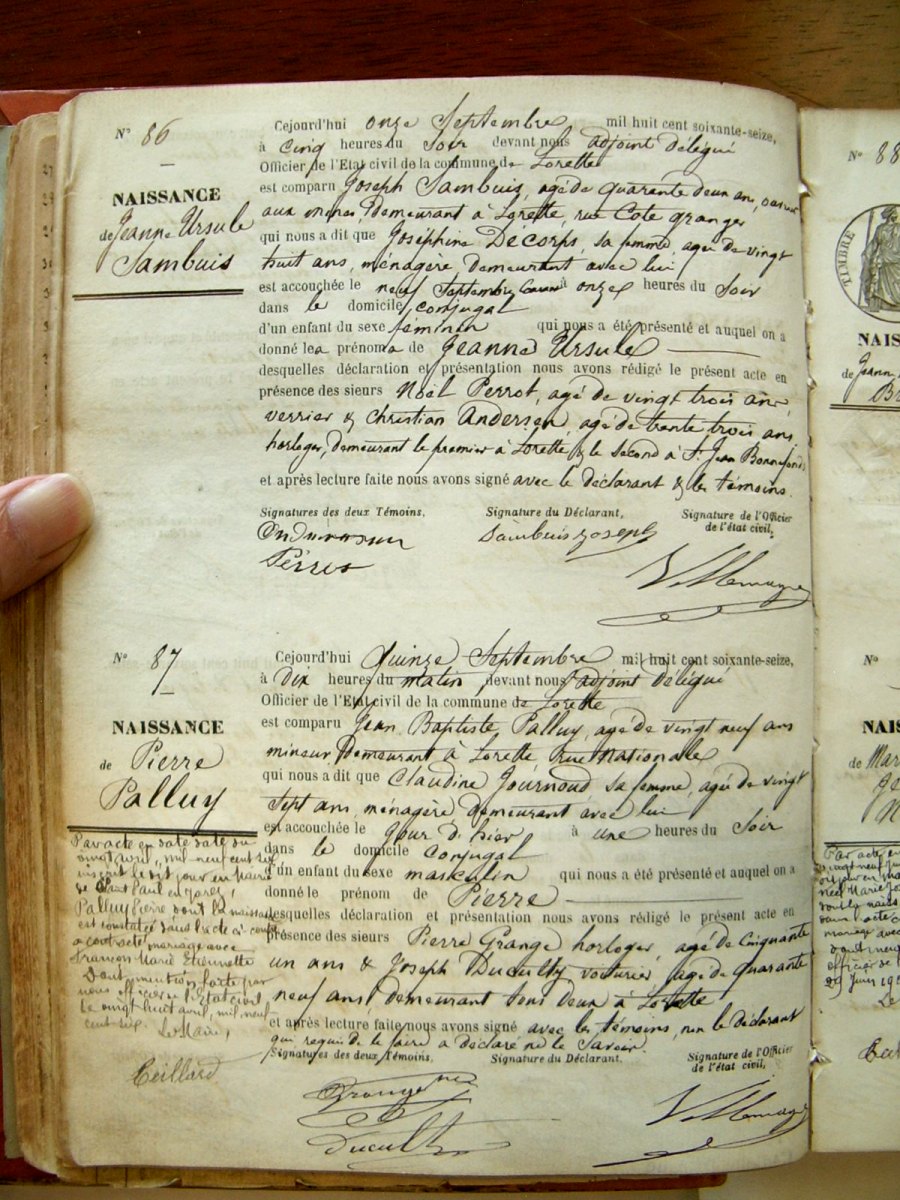 N° 86
NAISSANCE
de Jeanne Ursule
Sambuis
Cejourd'hui onze Septembre mil huit cent soixante-seize,
à cinq heures du soir devant nous adjoint délégué
Officier de l'Etat civil de la commune de Lorette
est comparu Joseph Sambuis, agé de quarante deux ans,
aux mines, Demeurant à Lorette, rue Cote granger
qui nous a dit que Joséphine Décorps, sa femme agée de vingt
huit ans, ménagère demeurant avec lui
est accouchée le neuf Septembre courant à onze heures du Soir
dans le domicile conjugal
d'un enfant du sexe féminin qui nous a été présenté et auquel on a
donné les prénoms de Jeanne Ursule
desquelles déclaration et présentation nous avons rédigé le présent acte en
présence des sieurs Noël Perrot, agé de vingt trois ans,
verrier & Christian Andersen, agé de trente trois ans,
horloger, demeurant le premier à Lorette & le second à St Jean Bonnefonds
et après lecture faite nous avons signé avec le déclarant & les témoins.
Signatures des deux Témoins, Signature du Déclarant, Signature de l'Officier
de l'état civil,
Sambuis Joseph
Perrot
N° 87
NAISSANCE
de Pierre
Palluy
Cejourd'hui Quinze Septembre mil huit cent soixante-seize,
à Dix heures du matin devant nous adjoint délégué
Officier de l'Etat civil de la commune de Lorette
est comparu Jean Baptiste Palluy, agé de vingt neuf ans
mineur Demeurant à Lorette rue Nationale
qui nous a dit que Claudine Journoud sa femme, agée de vingt
Sept ans, ménagère demeurant avec lui
est accouchée le jour d'hier à une heures du Soir
dans le domicile conjugal
d'un enfant du sexe masculin qui nous a été présenté et auquel on a
donné le prénom de Pierre
desquelles déclaration et présentation nous avons rédigé le présent acte en
présence des sieurs Pierre Grange horloger, agé de Cinquante
un ans & Joseph Ducultty voiturier, agé de quarante
neuf ans, demeurant tous deux à Lorette
et après lecture faite nous avons signé avec les témoins, non le déclarant
qui requis de le faire a déclaré ne le Savoir.
Signatures des deux Témoins, Signature du Déclarant. Signature de l'Officier
de l'état civil,
Par acte en date du
vingt avril, mil neuf cent six
inscrit le dit jour en Mairie
de Saint Paul en Jarez,
Palluy Pierre dont la naissance
est constatée dans l'acte ci-contre
a contracté mariage avec
françon Marie Etiennette
Dont mention faite par
nous officier de l'Etat civil
Le vingt huit avril, mil neuf
cent six. Le Maire,
N° 88
TIMBRE
NAIS
de Jeann
N°
NAIS
de Mar